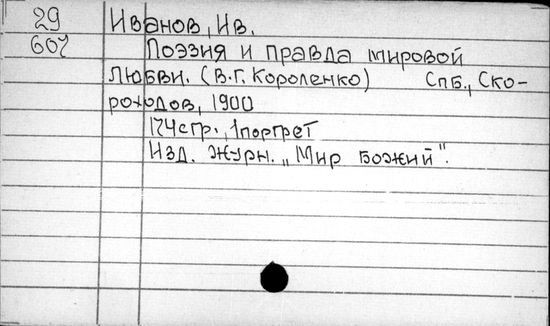 29 Иванов, Ив.
607 Поэзия и правда мировой
любви. (В.Г. Короленко) Спб., Ско-
роходов, 1900
174стр., 1портрет
Изд. журн. „Мир Божий".